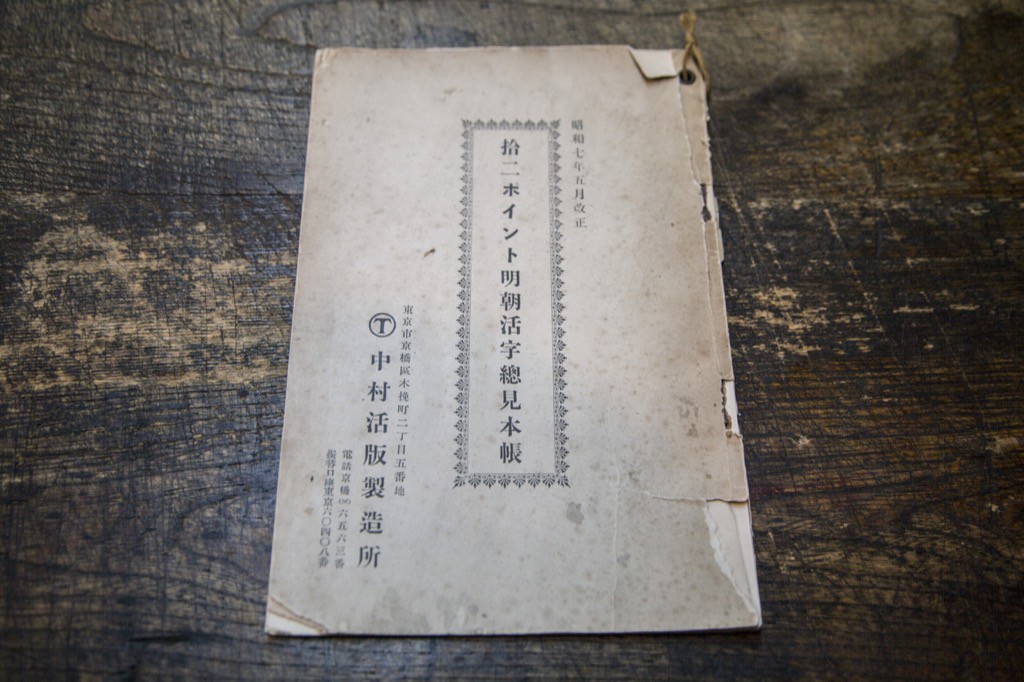 昭和七年五月改正
拾二ポイント明朝活字總見本帳
東京市京橋區木挽町二丁目五番地
Ⓣ中村活版製造所
電話京橋㊄六五六三番
振替口座東京六〇四〇八番